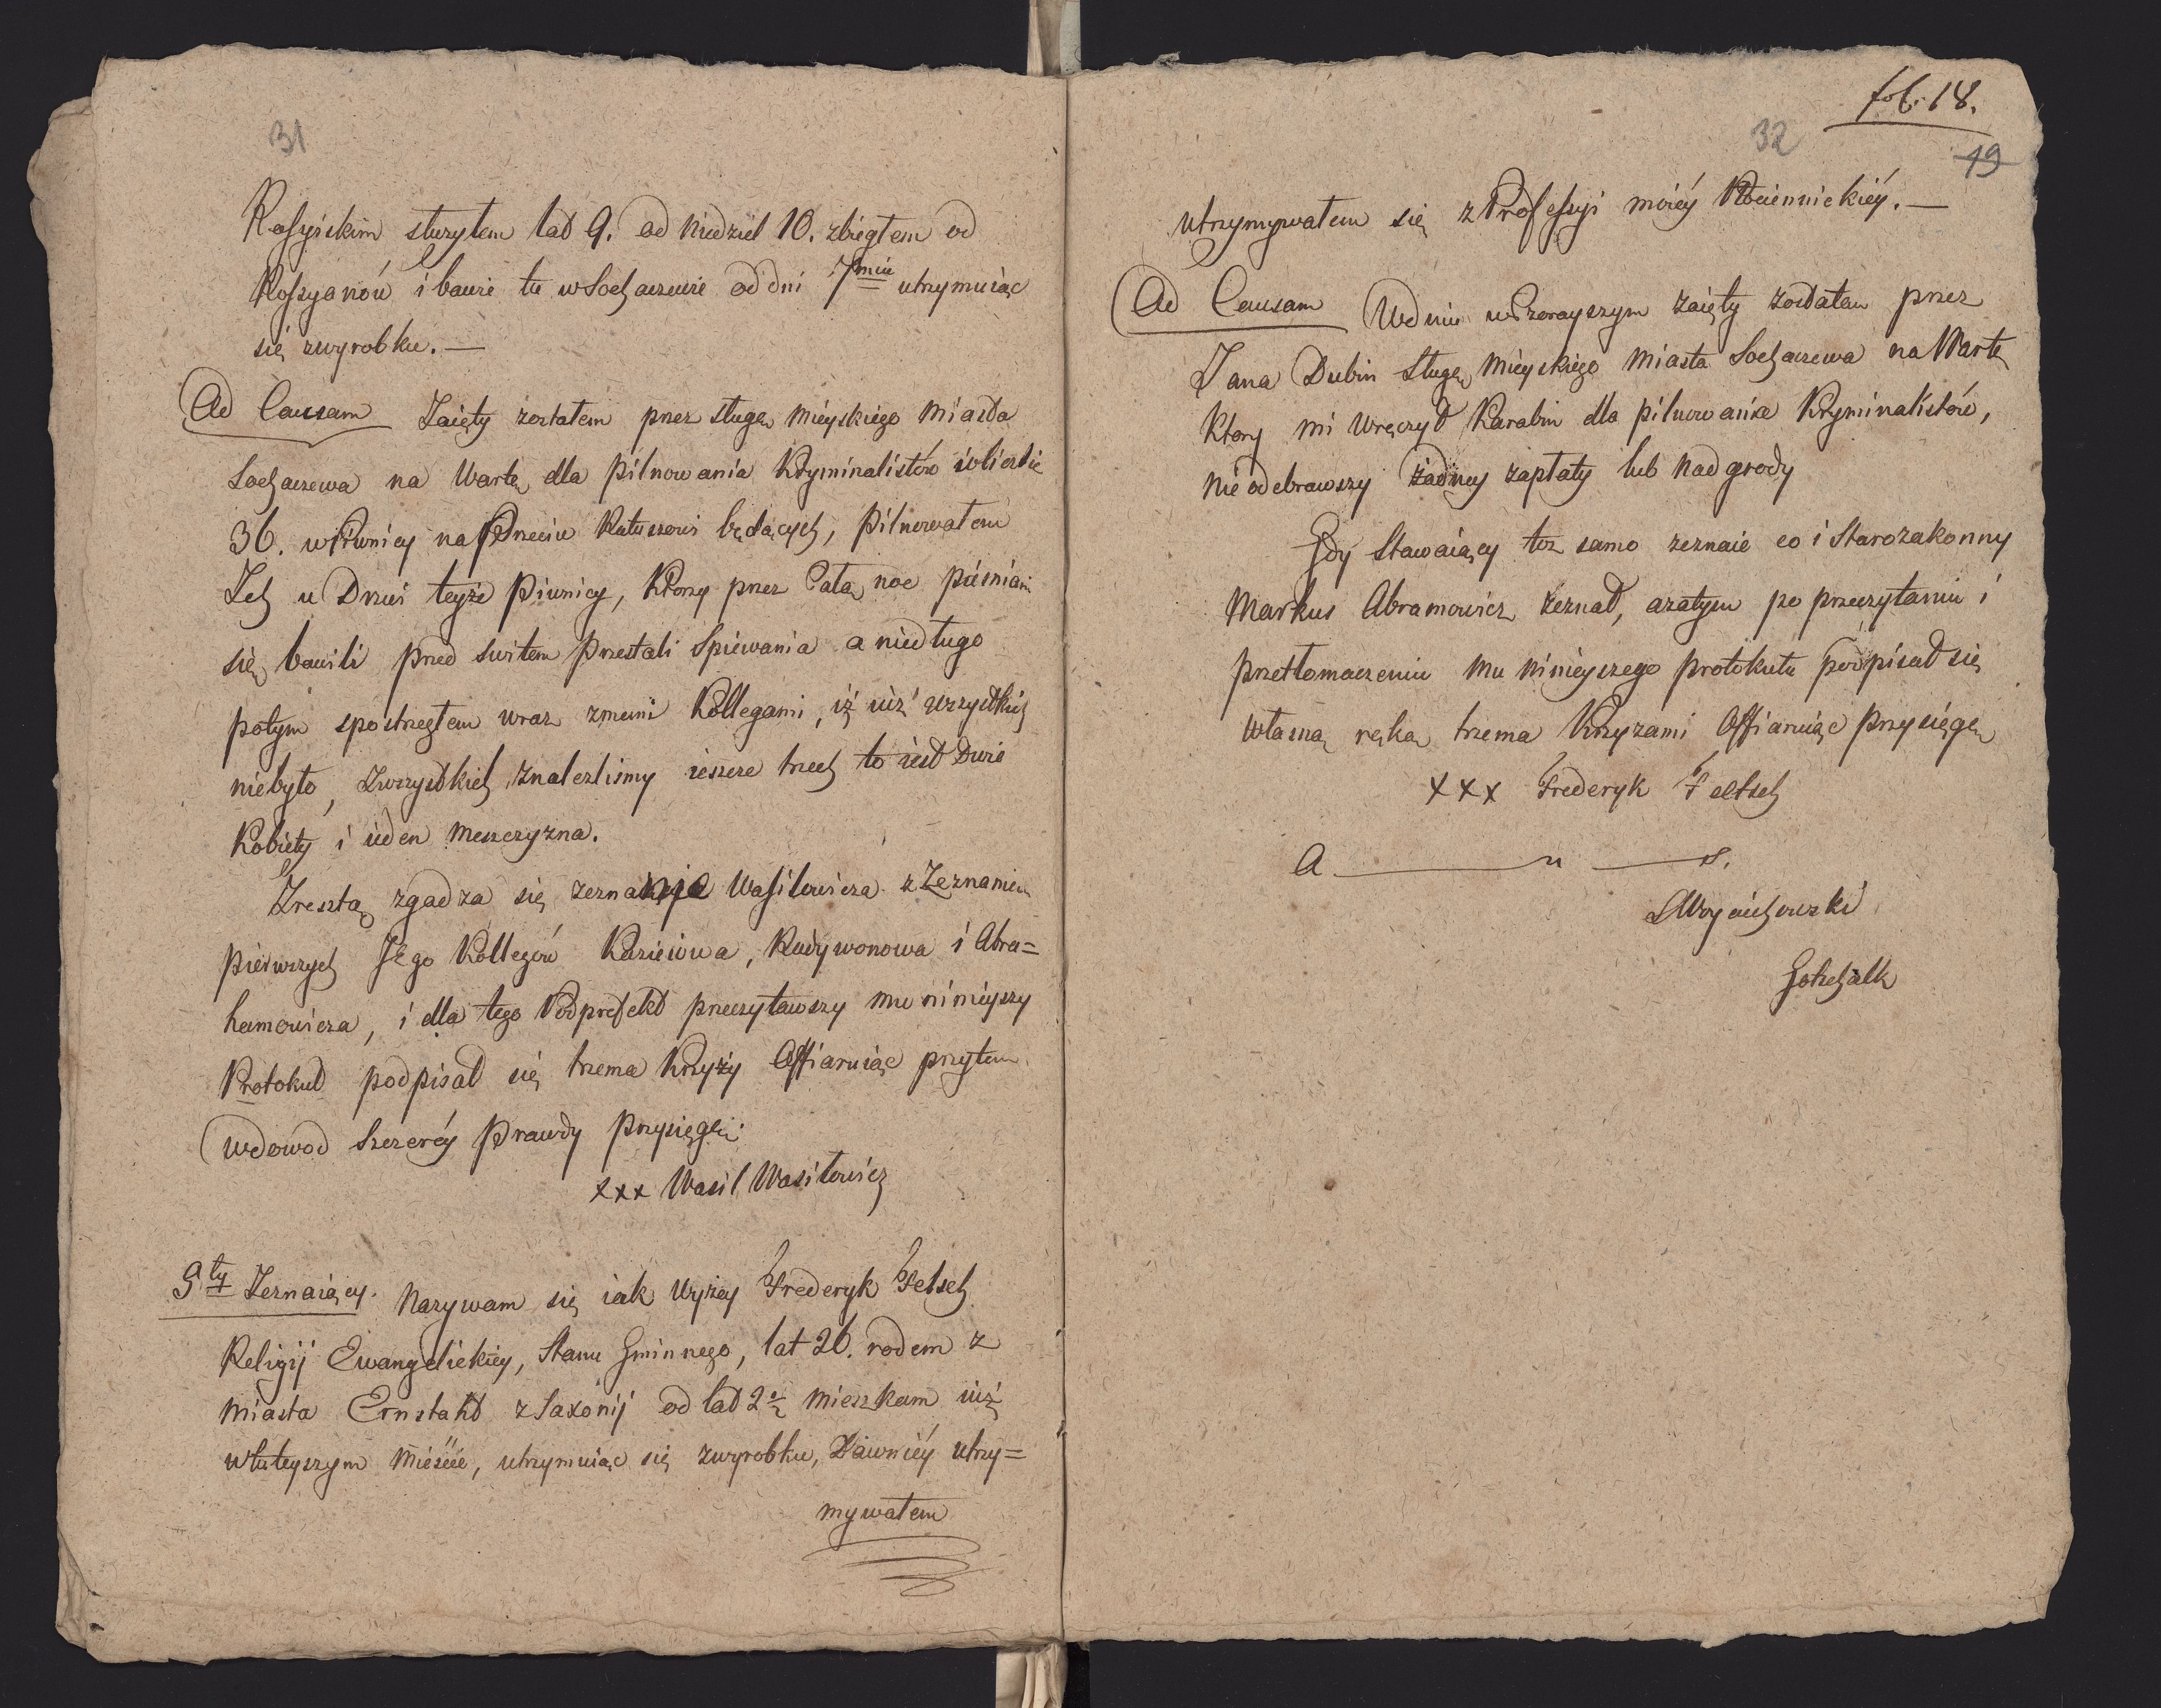 31
Rossyiskim służyłem lat 9. od Niedziel 10. zbiegłem od
Rossyanów i bawie tu w Sochaczewie od dni 7miu utrzymuiąc
się z wyrobku. —
Ad Causam Zaięty zostałem przez sługę Mieyskiego Miasta
Sochaczewa na Wartę dla pilnowania Kryminalistów w liczbie
36. w Piwnicy naprzeciw Ratuszowi będących, pilnowałem
Ich u Drzwi teyże Piwnicy, Ktorzy przez Całą noc pieśniami
się bawili przed switem przestali Spiewania a niedługo
potym spostrzegłem wraz z memi Kollegami, iż iuż wszystkich
niebyło, Zwszystkich znalezlismy ieszcze trzech to iest Dwie
Kobiety i ieden Meszczyzna.
Zresztą zgadza się zeznanie Wassilewicza z Zeznaniem
pierwszych Jego Kollegów Kasieiowa, Radywonowa i Abra=
hamowicza, i dla tego Podprefekt przeczytawszy mu ninieyszy
Protokuł podpisał się trzema Krzyży Offiaruiąc przytem
w dowod Szczerey Prawdy Przysięgę.
xxx Wasil Wasilowicz
5ty Zeznaiący. Nazywam się iak Wyżey Frederyk Fetsch
Religij Ewangelickiey, Stanu Gminnego, lat 26. rodem z
Miasta Ernstahl z Saxonij od lat 2 Mieszkam iuż
w tuteyszym Mieście, utrzymuiąc się z wyrobku, Dawniéy utrzy=
mywałem
fol. 18.
32
19
utrzymywałem się z Professyi moiéy Płóciennickiéy. —
Ad Causam W dniu wczorayszym zaięty zostałem przez
Jana Dubin Sługę Mieyskiego Miasta Sochaczewa na Wartę
Ktory mi wręczył Karabin dla pilnowania Kryminalistów,
nieodebrawszy żadney zapłaty lub Nadgrody
Gdy Stawaiący toż samo zeznaie co i Starozakonny
Markus Abramowicz zeznał, azatym po przeczytaniu i
przetłomaczeniu mu ninieyszego protokułu podpisał się
własną ręką trzema Krzyżami Offiaruiąc Przysięgę
xxx Frederyk Feltsch
A ——— u ——— s.
Woyciechowski
Gotschalk